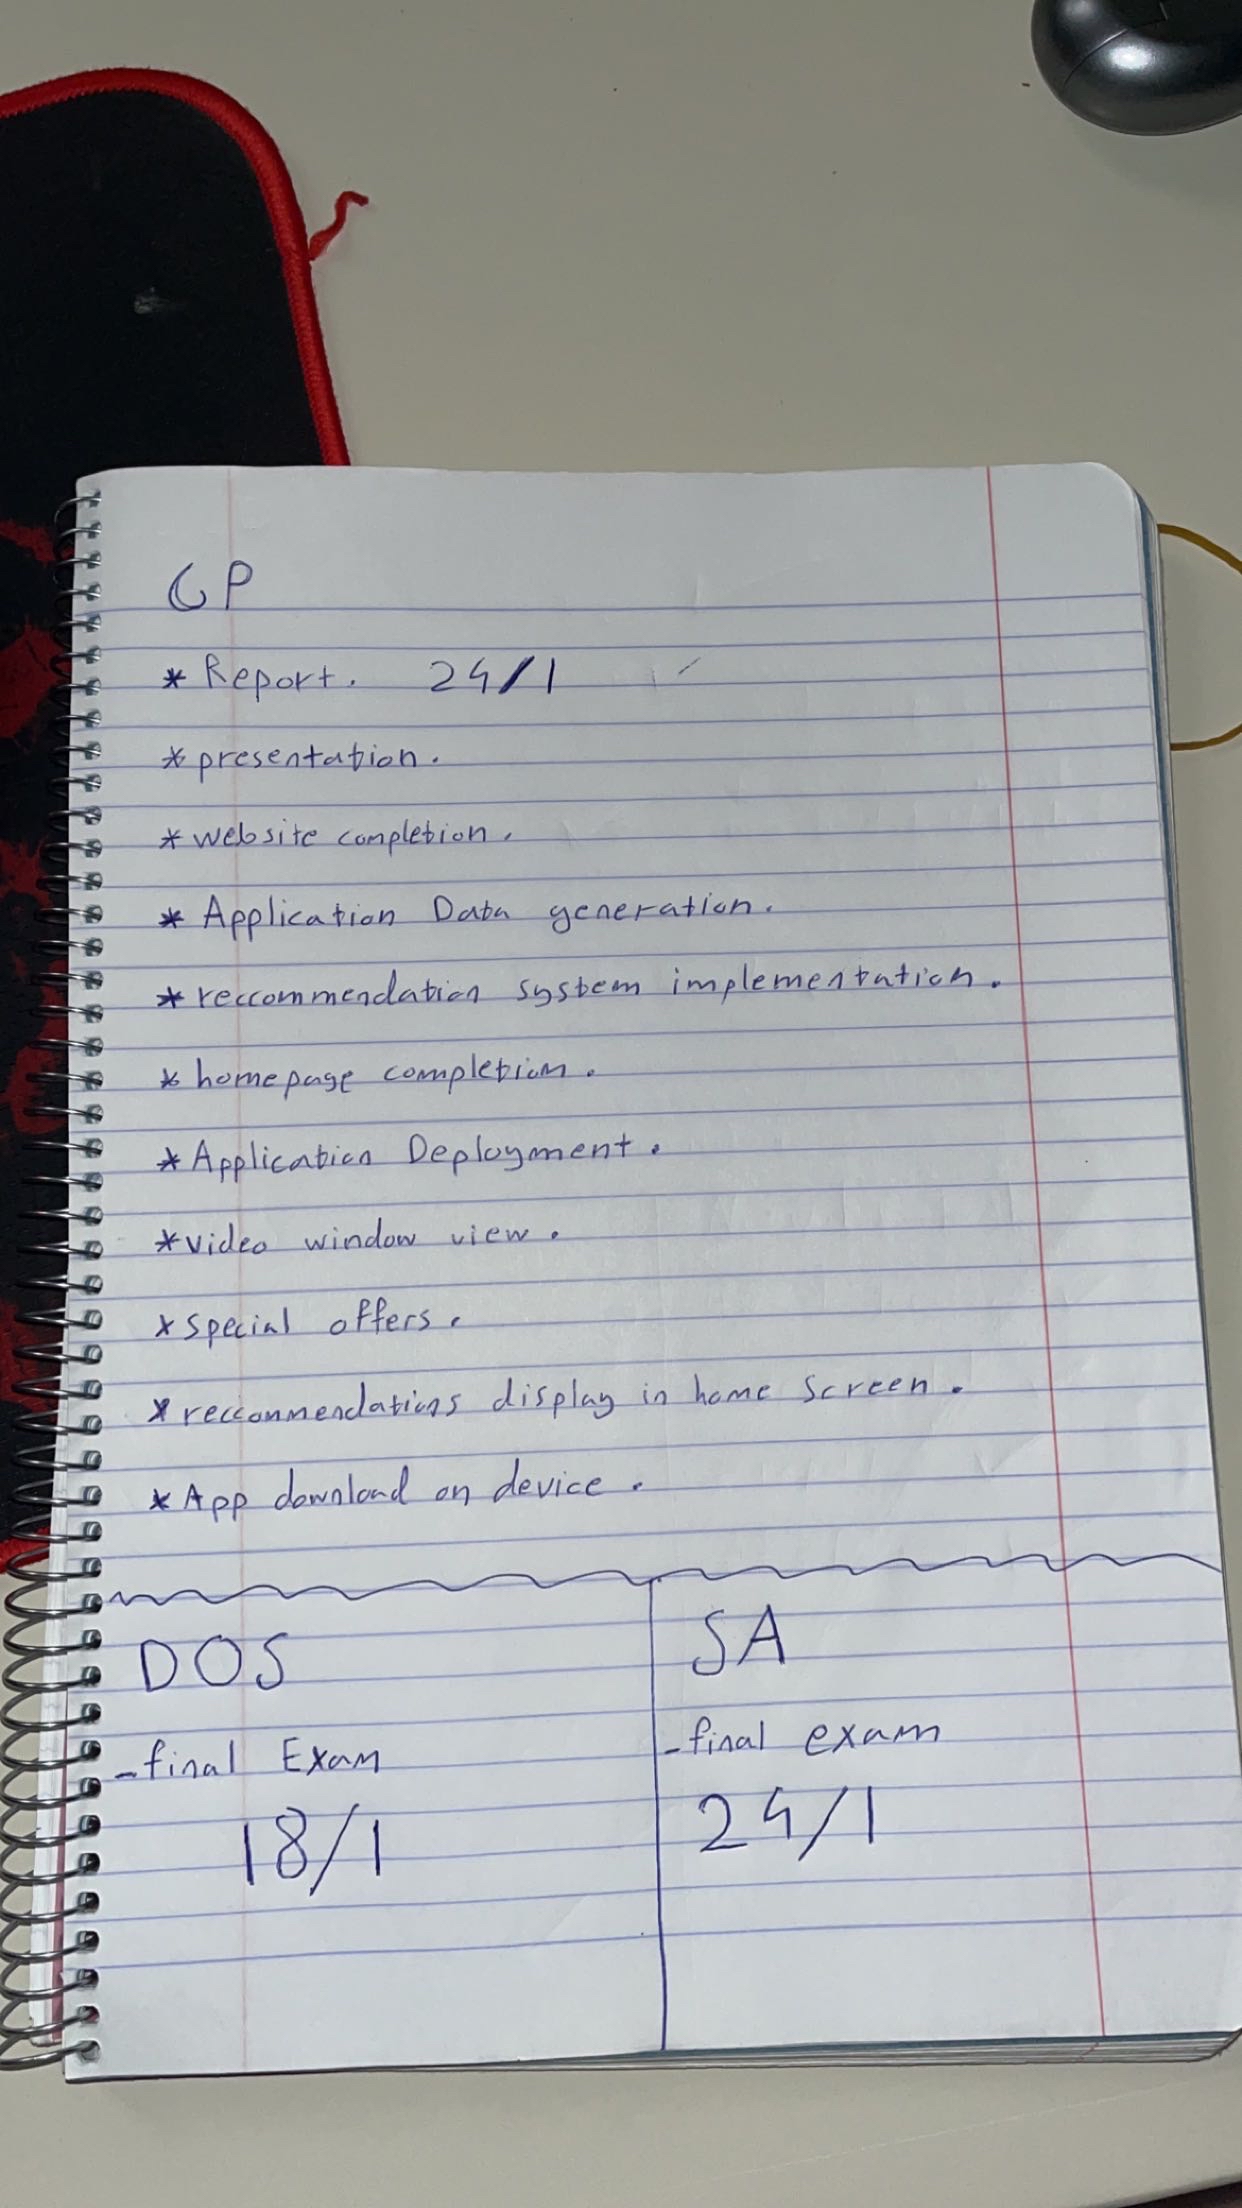 GP
* Report. 24/1
* presentation.
* website completion.
* Application Data generation.
* reccommendation system implementation.
* homepage completion.
* Application Deployment.
* video window view.
* special offers.
* reccommendations display in home screen.
* App download on device.
DOS
- final Exam
18/1
SA
- final exam
24/1